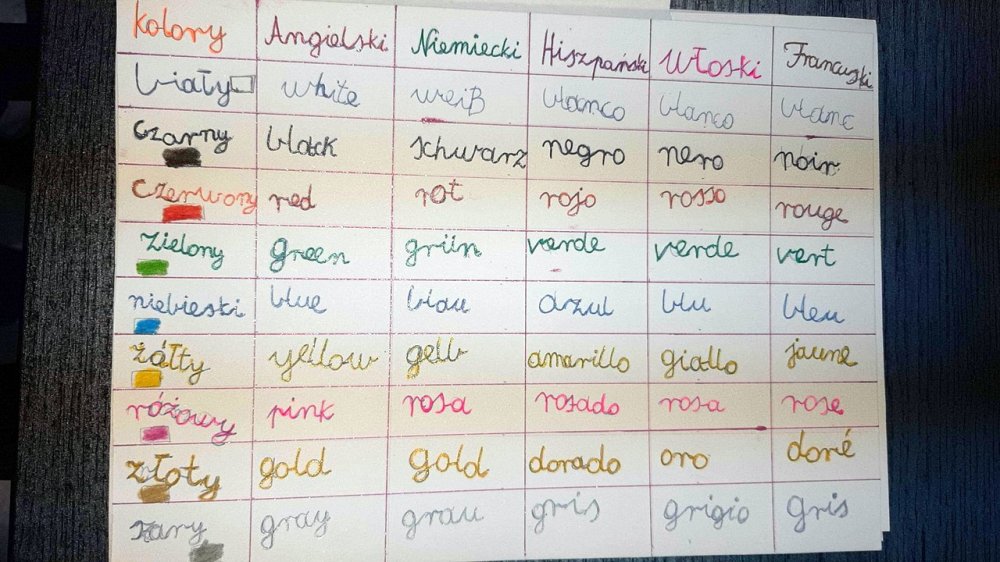 kolory Angielski Niemiecki Hiszpański Włoski Francuski
biały white weiß blanco blanco blanc
czarny black schwarz negro nero noir
czerwony red rot rojo rosso rouge
zielony green grün verde verde vert
niebieski blue blau azul blu bleu
żółty yellow gelb amarillo giallo jaune
różowy pink rosa rosado rosa rose
złoty gold gold dorado oro doré
szary gray grau gris grigio gris